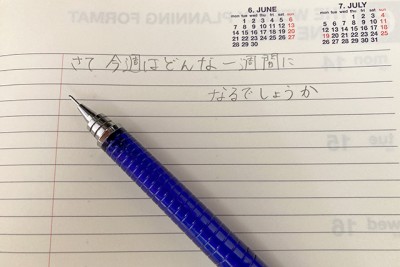 PLANNING FORMAT
6. JUNE
mon tue wed thu fri sat sun
1 2 3 4 5 6
7 8 9 10 11 12 13
14 15 16 17 18 19 20
21 22 23 24 25 26 27
28 29 30
7. JULY
mon tue wed thu fri sat sun
1 2 3 4
5 6 7 8 9 10 11
12 13 14 15 16 17 18
19 20 21 22 23 24 25
26 27 28 29 30 31
さて 今週はどんな一週間に
なるでしょうか
mon 14
tue 15
wed 16